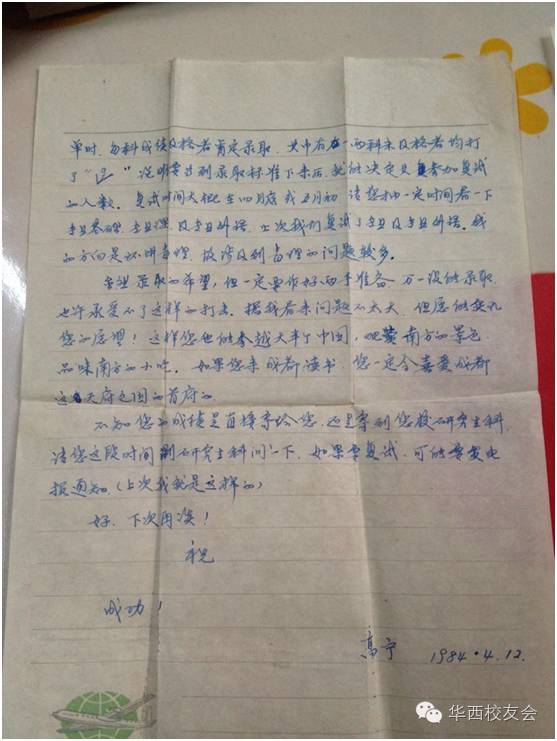 单时，每科成绩及格者肯定录取，其中有一两科未及格者均打
了“△”说明要等到录取标准下来后，就能决定及参加复试
的人数。复试时间大概在四月底或五月初，请您抽一定时间看一下
专业基础，专业理，及专业外语。上次我们复试了专业及专业外语。我
的方向是坏、毒理，故涉及到毒理的问题较多。
录取的希望，但一定要作好两手准备，万一没能录取，
也许承受不了这样的打击。据我看来问题不太大，但愿能实现
您的愿望！这样您也能参越大半个中国，观赏南方的景色，
品味南方的小吃。如果您来成都读书，您一定会喜爱成都
这个天府之国的首府的。
不知您的成绩是直接寄给您，还是寄到您校研究生科，
请您这段时间到研究生科问一下，如果要复试，可能要发电
报通知（上次我就是这样的）
好，下次再谈！
祝
成功！
高宁 1984.4.12.
华西校友会